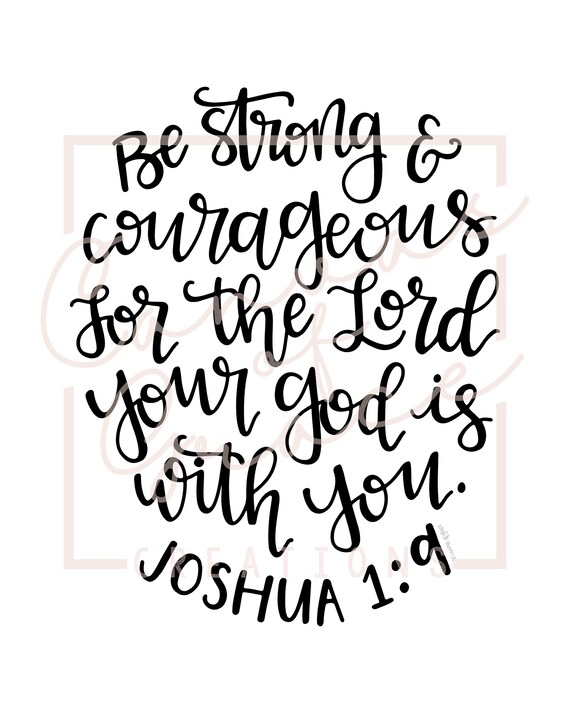 Be strong &
courageous
for the Lord
your God is
with you.
JOSHUA 1:9
Canvas
of
Grace
CREATIONS